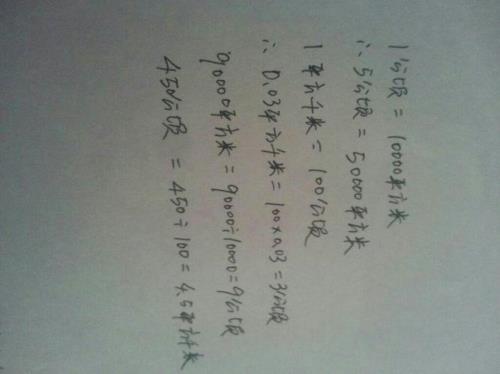 1公顷 = 10000平方米
∴ 5公顷 = 50000平方米
1平方千米 = 100公顷
∴ 0.03平方千米 = 100×0.03 = 3公顷
90000平方米 = 90000÷10000 = 9公顷
450公顷 = 450÷100 = 4.5平方千米